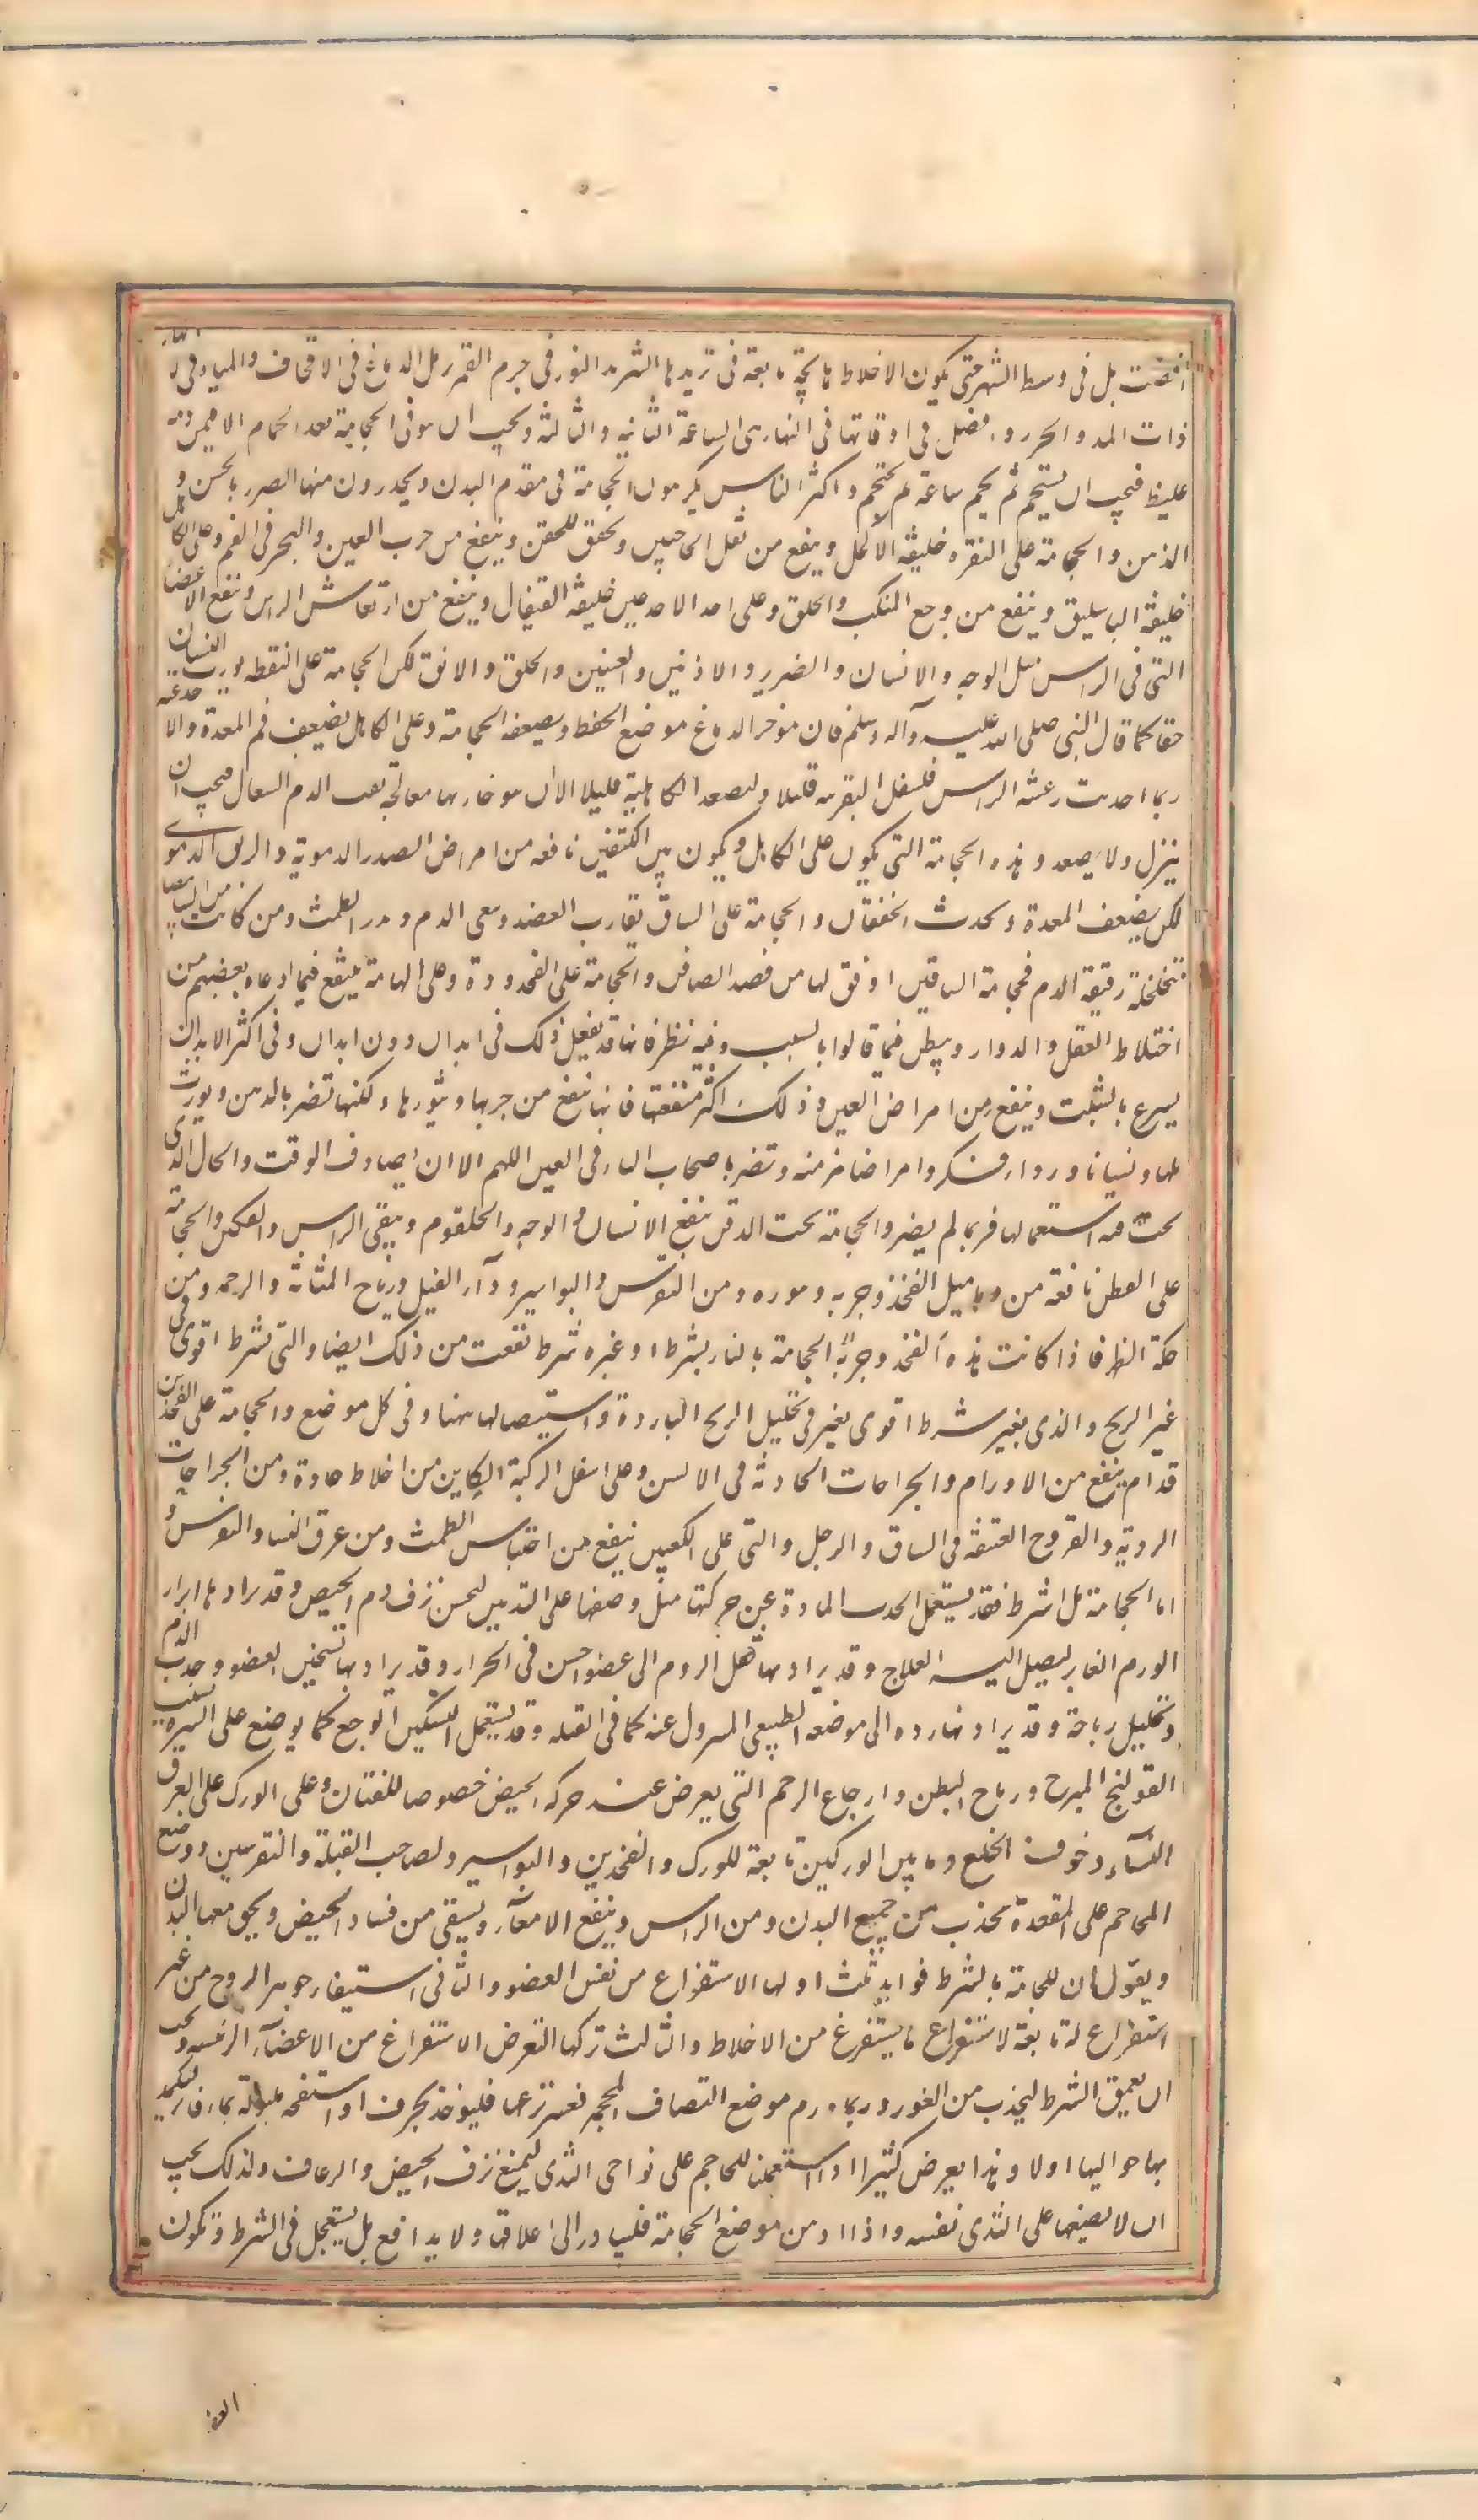 نقصت بل فى وسط الشهر حتى يكون الاخلاط هايجة تابعة فى تزيدها لتزيد النور فى جرم القمر يزيد الدماغ فى الاقحاف والمياه فى الانهار
ذات المد والجزر وافضل اوقاتها فى النهار هى الساعة الثانيه والثالثة ويجب ان يتوقى الحجامة بعد الحمام الا فيمن دمه
غليظ فيجب ان يستحم ثم يجم ساعة ثم يحتجم واكثر الناس يكرهون الحجامة فى مقدم البدن ويحذرون منها الضرر بالحس و
الذهن والحجامة على النقره خليفة الاكحل وينفع من ثقل الحاجبين ويخفف الجفن وينفع من جرب العين والبخر فى الفم وعلى الكاهل
خليفة الباسليق وينفع من وجع المنكب والحلق وعلى احد الاخدعين خليفة القيفال وينفع من ارتعاش الراس وينفع الاعضا
التى فى الراس مثل الوجه والاسنان والضرس والاذنين والعينين والحلق والانف لكن الحجامة على النقطه يورث النسيان
حقا كما قال النبى صلى الله عليه وآله وسلم فان موخر الدماغ موضع الحفظ ويضعفه الحجامة وعلى الكاهل يضعف فم المعدة والاخدعيه
ربما احدثت رعشة الراس فليسفل النقرية قليلا وليصعد الكاهلية قليلا الا ان يتوخى بها معالجة نفث الدم السعال فيجب ان
ينزل ولا يصعد وهذه الحجامة التى يكون على الكاهل ويكون بين الكتفين نافعه من امراض الصدر الدموية والربو الدموى
لكن يضعف المعدة ويحدث الخفقان والحجامة على الساق تقارب الفصد وينقى الدم ويدر الطمث ومن كانت من النسا بيضا
متخلخلة رقيقة الدم فحجامة الساقين اوفق لها من فصد الصافن والحجامة على القمحدودة وعلى الهامة ينفع فيما ادعاه بعضهم من
اختلاط العقل والدوار ويبطى فيما قالوا بالشيب وفيه نظر فانها قد يفعل ذلك فى ابدان دون ابدان وفى اكثر الابدان
يسرع بالشيب وينفع من امراض العين وذلك اكثر منفعتها فانها ينفع من جربها وبثورها ولكنها تضر بالذهن ويورث
بلها ونسيانا ورداءة فكر وامراضا مزمنه وتضر باصحاب الماء فى العين اللهم الا ان يصادف الوقت والحال الذى
يجب فيه استعمالها فربما لم يضر والحجامة تحت الذقن ينفع الاسنان والوجه والحلقوم وينقى الراس والفكين والحجامة
على القطن نافعة من دماميل الفخذ وجربه وبثوره ومن النقرس والبواسير وداء الفيل ورياح المثانة والرحم ومن
حكة الظهر فاذا كانت هذه الفخذ وجربه الحجامة بالنار بشرط او غير شرط نفعت من ذلك ايضا والتى بشرط اقوى فى
غير الريح والذى بغير شرط اقوى بغير فى تحليل الريح الباردة واستيصالها ههنا وفى كل موضع والحجامة على الفخذين
قدام ينفع من الاورام والجراحات الحادثة فى الاليين وعلى اسفل الركبة الكاين من اخلاط حادة ومن الجراحات
الردية والقروح العتيقة فى الساق والرجل والتى على الكعبين ينفع من احتباس الطمث ومن عرق النسا والنقرس و
اما الحجامة بلا شرط فقد يستعمل لجذب المادة عن جهة حركتها مثل وضعها على الثديين لحبس نزف دم الحيض وقد يراد بها ابراز
الورم الغاير ليصل اليه العلاج وقد يراد بها نقل الورم الى عضو اخس فى الجوار وقد يراد بها تسخين العضو وجذب الدم
وتحليل رياحه وقد يراد بها رده الى موضعه الطبيعى المنزول عنه كما فى القيله وقد يستعمل لتسكين الوجع كما يوضع على السرة بسبب
القولنج المبرح ورياح البطن واوجاع الرحم التى يعرض عند حركه الحيض خصوصا للفتيات وعلى الورك على العرق
النسآء وخوف الخلع وما بين الوركين نافعة للورك والفخذين والبواسير ولصاحب القيلة والنقرسين ووضع
المحاجم على المقعدة يجذب من جميع البدن ومن الراس وينفع الامعآء ويشفى من فساد الحيض ويخف معها البدن
ويقول ان للحجامة بالشرط فوايد ثلث اولها الاستفراغ من نفس العضو والثانى استبقاء جوهر الروح من غير
استفراغ له تابعة لاستفراغ ما يستفرغ من الاخلاط والثالث تركها التعرض الاستفراغ من الاعضآء الرئيسه ويجب
ان يعمق الشرط ليجذب من الغور وربما ورم موضع التصاق المحجمة فعسر نزعها فليوخذ بخرق او اسفنجه مبلولة بماء فاتر يكمد
بها حواليها اولا وهذا يعرض كثيرا اذا استعملنا المحاجم على نواحى الثدى ليمنع نزف الحيض والرعاف ولذلك يجب
ان لا يضعها على الثدى نفسه واذا ادهن موضع الحجامة فليبادر الى اعلاقها ولا يدافع بل يستعجل فى الشرط وتكون